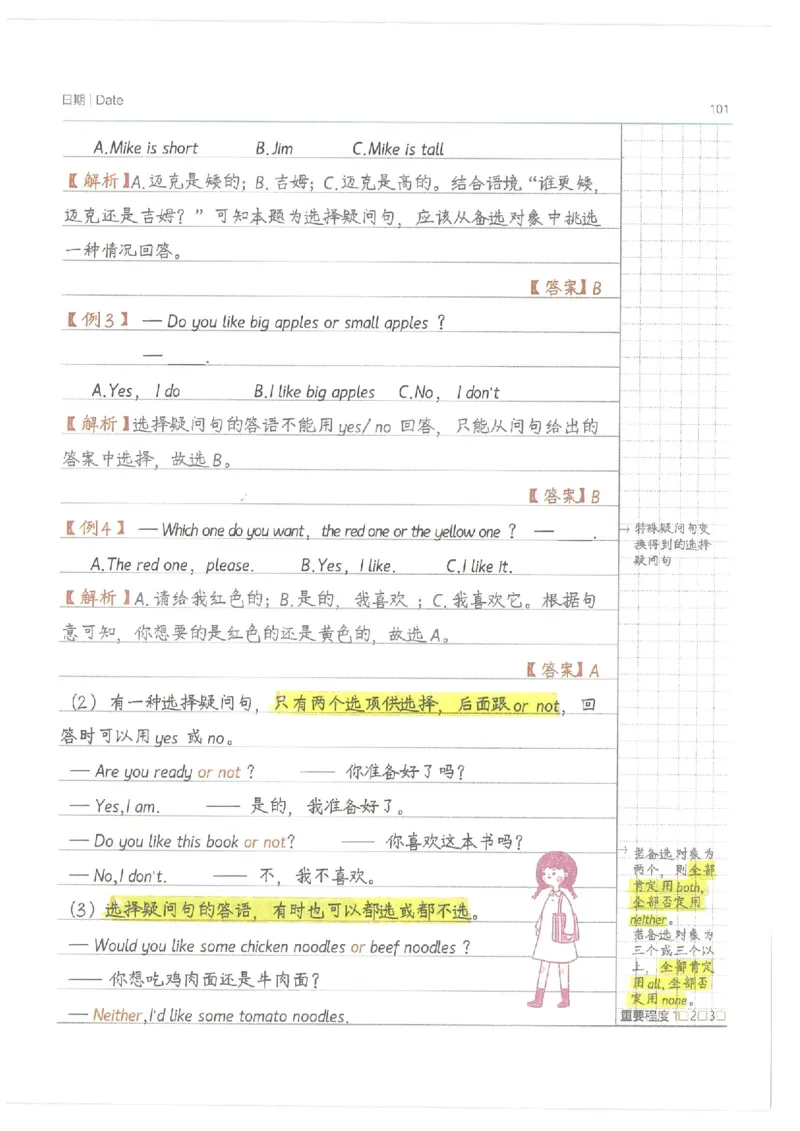 日期 | Date
101
A.Mike is short B.Jim C.Mike is tall
【解析】A.迈克是矮的；B.吉姆；C.迈克是高的。结合语境“谁更矮，
迈克还是吉姆？”可知本题为选择疑问句，应该从备选对象中挑选
一种情况回答。
【答案】B
【例3】 — Do you like big apples or small apples ？
— ____.
A.Yes， I do B.I like big apples C.No， I don't
【解析】选择疑问句的答语不能用 yes/ no 回答，只能从问句给出的
答案中选择，故选 B。
【答案】B
【例4】 — Which one do you want，the red one or the yellow one ？ — ____.
A.The red one，please. B.Yes，I like. C.I like it.
【解析】A.请给我红色的；B.是的，我喜欢；C.我喜欢它。根据句
意可知，你想要的是红色的还是黄色的，故选 A。
【答案】A
→ 特殊疑问句变
换得到的选择
疑问句
（2）有一种选择疑问句，只有两个选项供选择，后面跟 or not，回
答时可以用 yes 或 no。
— Are you ready or not ？ —— 你准备好了吗？
— Yes,I am. —— 是的，我准备好了。
— Do you like this book or not？ —— 你喜欢这本书吗？
— No,I don't. —— 不，我不喜欢。
（3）选择疑问句的答语，有时也可以都选或都不选。
— Would you like some chicken noodles or beef noodles ？
—— 你想吃鸡肉面还是牛肉面？
— Neither,I'd like some tomato noodles.
→ 若备选对象为
两个，则全部
肯定用 both,
全部否定用
neither。
若备选对象为
三个或三个以
上，全部肯定
用 all,全部否
定用 none。
重要程度 1□2□3□